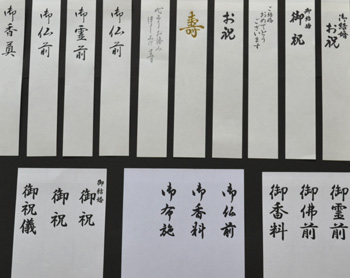 御結婚
お祝
御結婚
御祝
ご結婚
おめでとう
ございます
お祝
寿
御仏前
御霊前
御仏前
御香奠
御霊前
御佛前
御香料
御仏前
御香料
御布施
御結婚
御祝
御祝
御祝儀